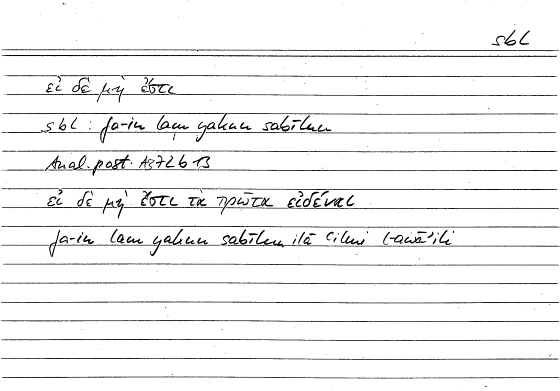 sbl
εἰ δὲ μὴ ἔστι
sbl : fa-in lam yakun sabīlun
Anal. post. A3 72 b 13
εἰ δὲ μὴ ἔστι τὰ πρῶτα εἰδέναι
fa-in lam yakun sabīlun ilā ʿilmi l-awāʾili